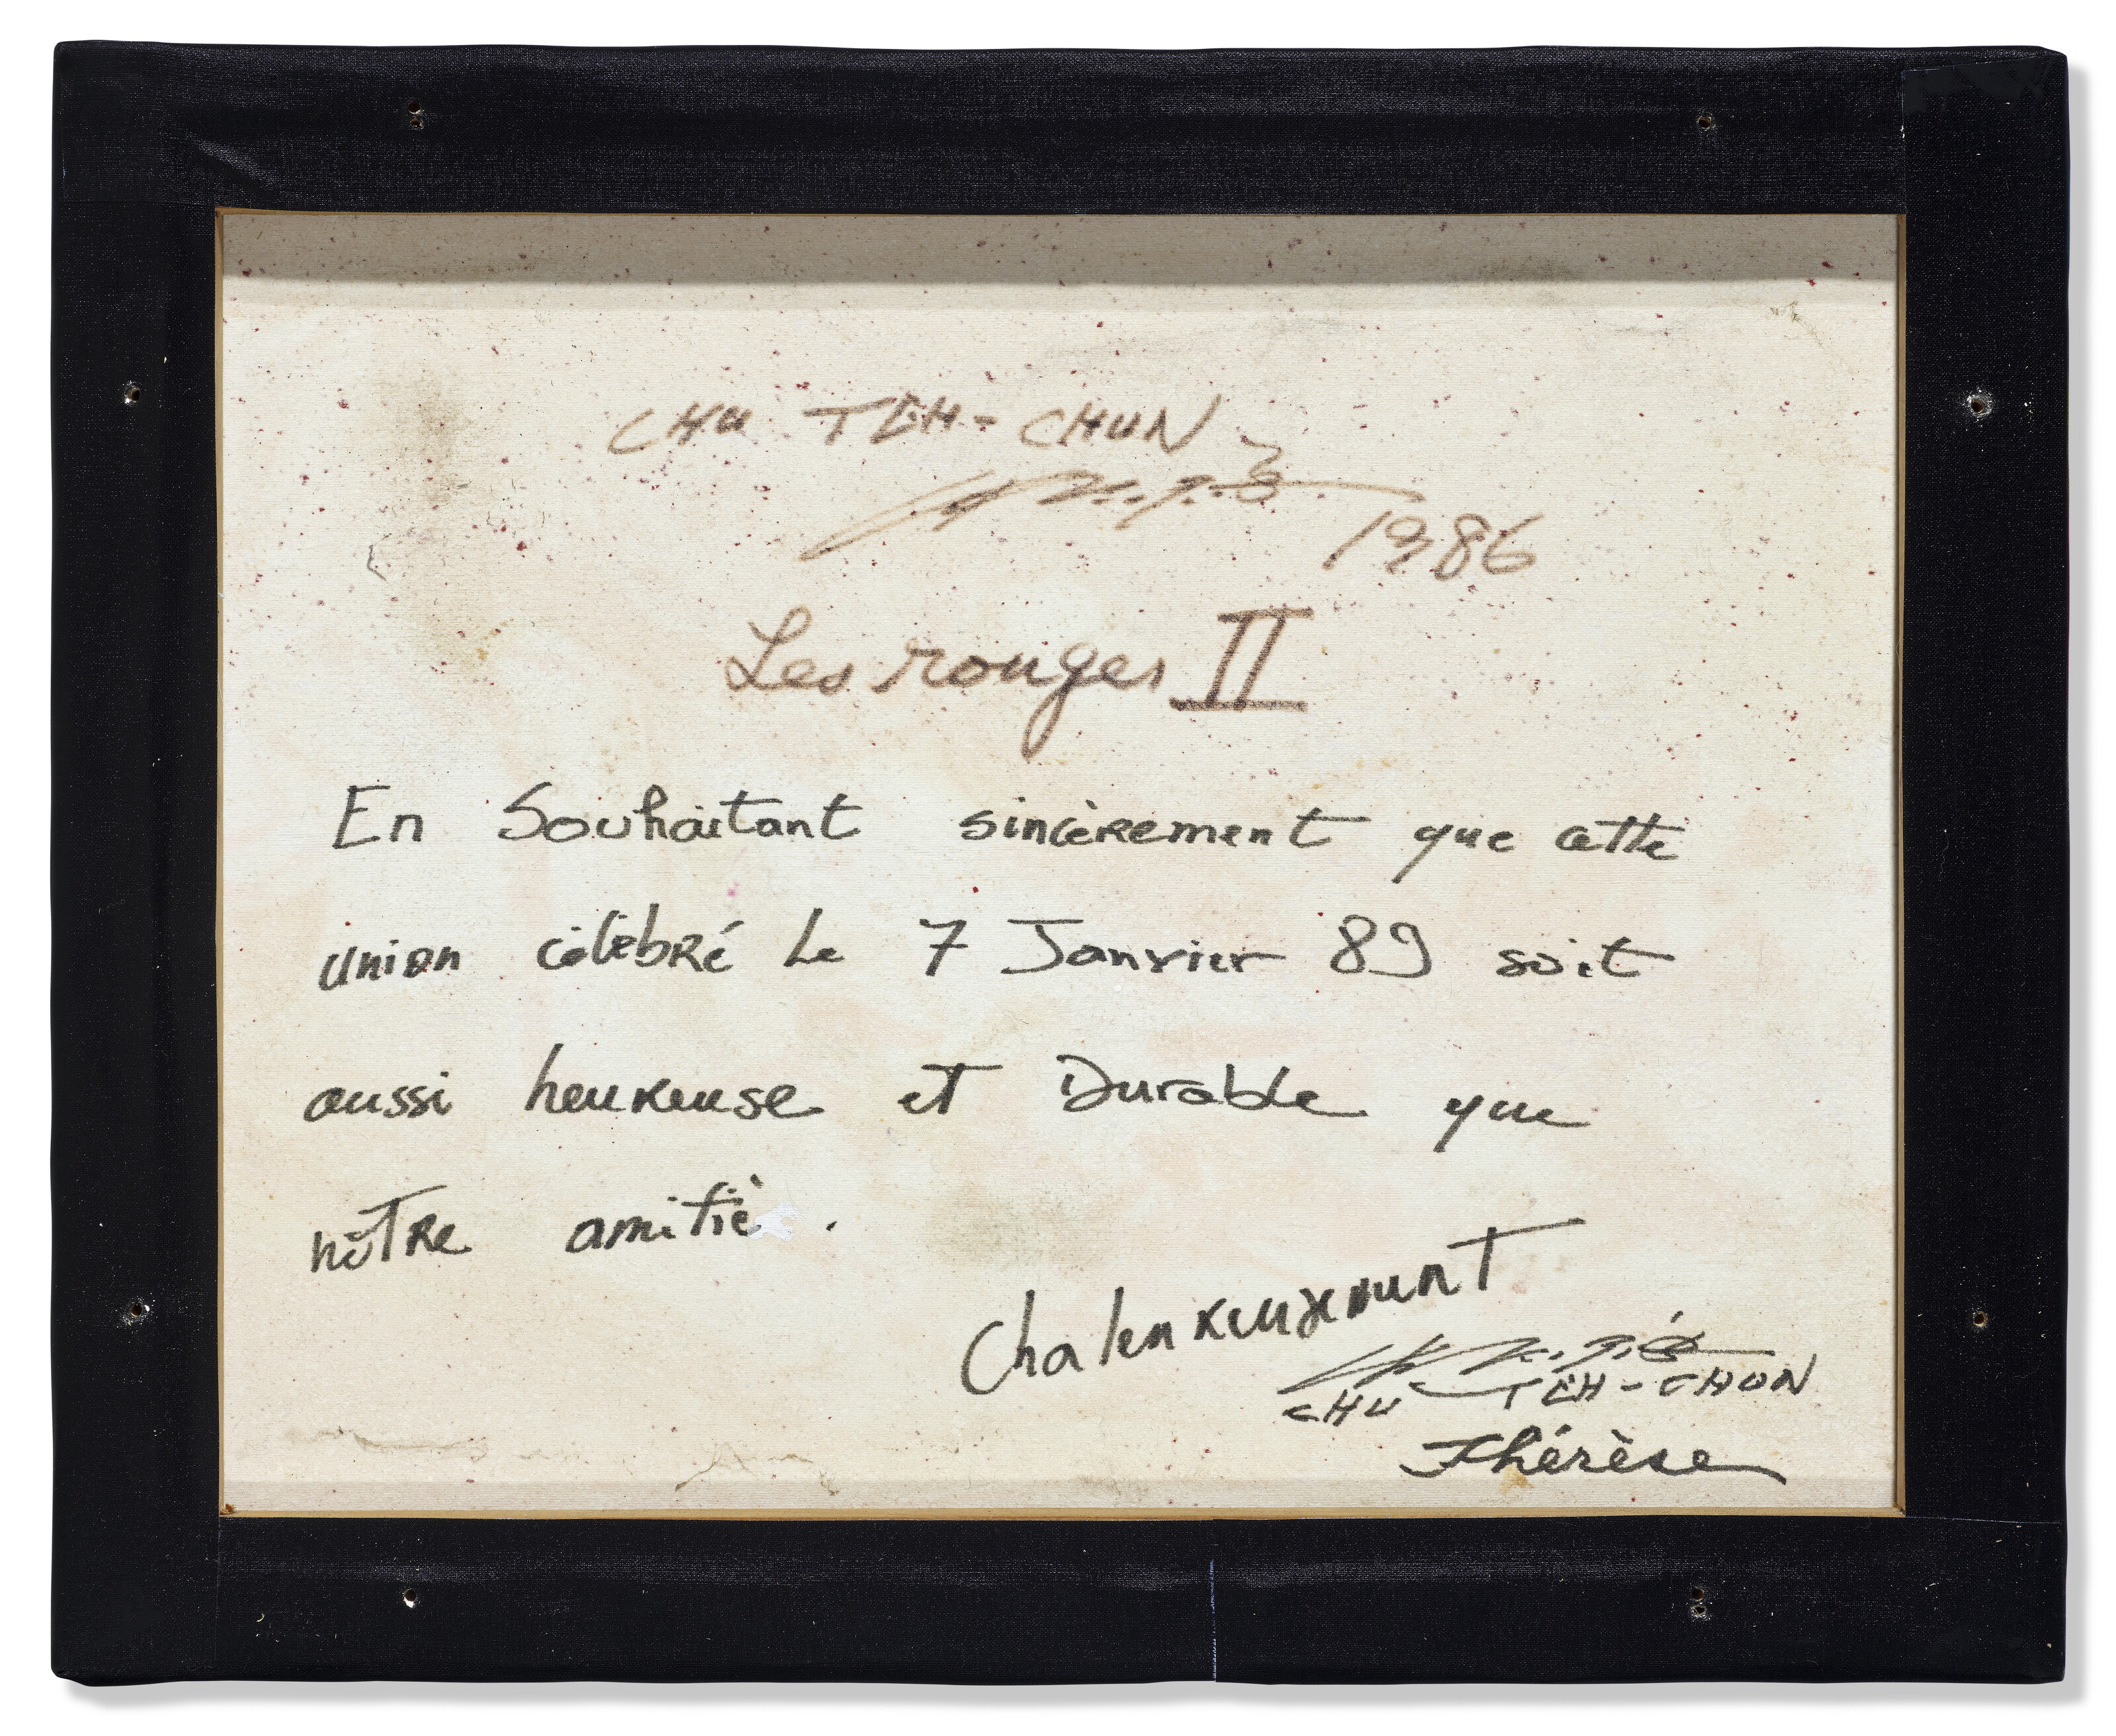 CHU TEH-CHUN
1986
Les rouges II
En Souhaitant sincèrement que cette
union célébré le 7 Janvier 89 soit
aussi heureuse et Durable que
nôtre amitié .
Chaleureusement
CHU TEH-CHUN
Thérèse